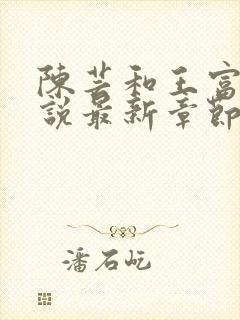 陳芸和王富
說最新章節
潘石屹